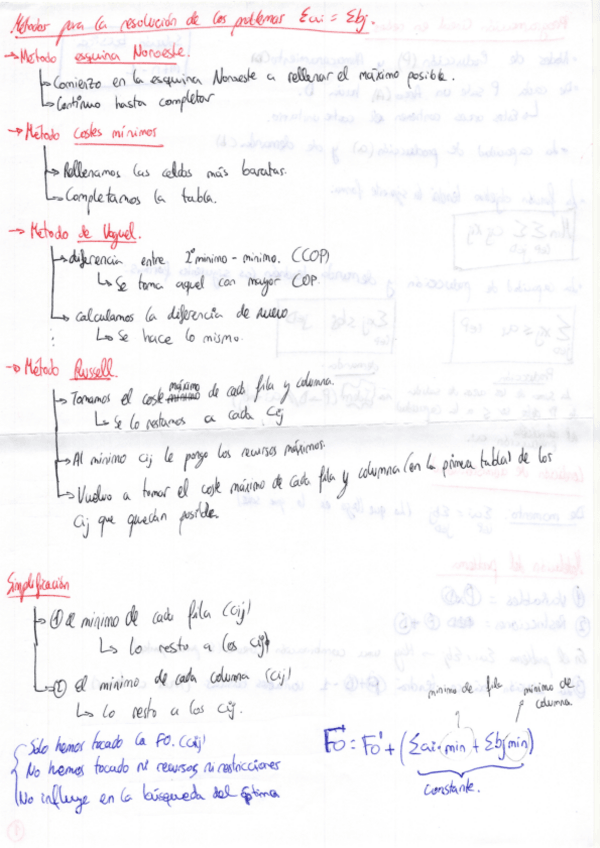 Métodos para la resolución de los problemas Σai = Σbj.
→ Metodo esquina Noroeste.
↳ Comienzo en la esquina Noroeste a rellenar el máximo posible.
↳ Continuo hasta completar
→ Método costes mínimos
↳ Rellenamos las celdas más baratas.
↳ Completamos la tabla.
→ Metodo de Voguel.
↳ diferencia entre 2º minimo - minimo. (COP)
↳ Se toma aquel con mayor COP.
↳ calculamos la diferencia de nuevo
↳ Se hace lo mismo.
→ Método Russell.
↳ Tomamos el coste máximo de cada fila y columna.
↳ Se lo restamos a cada cij
↳ Al mínimo cij le pongo los recursos máximos.
↳ Vuelvo a tomar el coste máximo de cada fila y columna (en la primera tabla) de los
cij que quedan posible.
Simplificación
↳ ① el minimo de cada fila (cij)
↳ lo resto a los cij
↳ ② el minimo de cada columna (cij)
↳ lo resto a los cij.
minimo de fila
minimo de columna
Solo hemos tocado la FO. (cij)
No hemos tocado ni recursos ni restricciones
No influye en la búsqueda del óptimo
FO = FO' + (Σai·min + Σbj min)
constante.